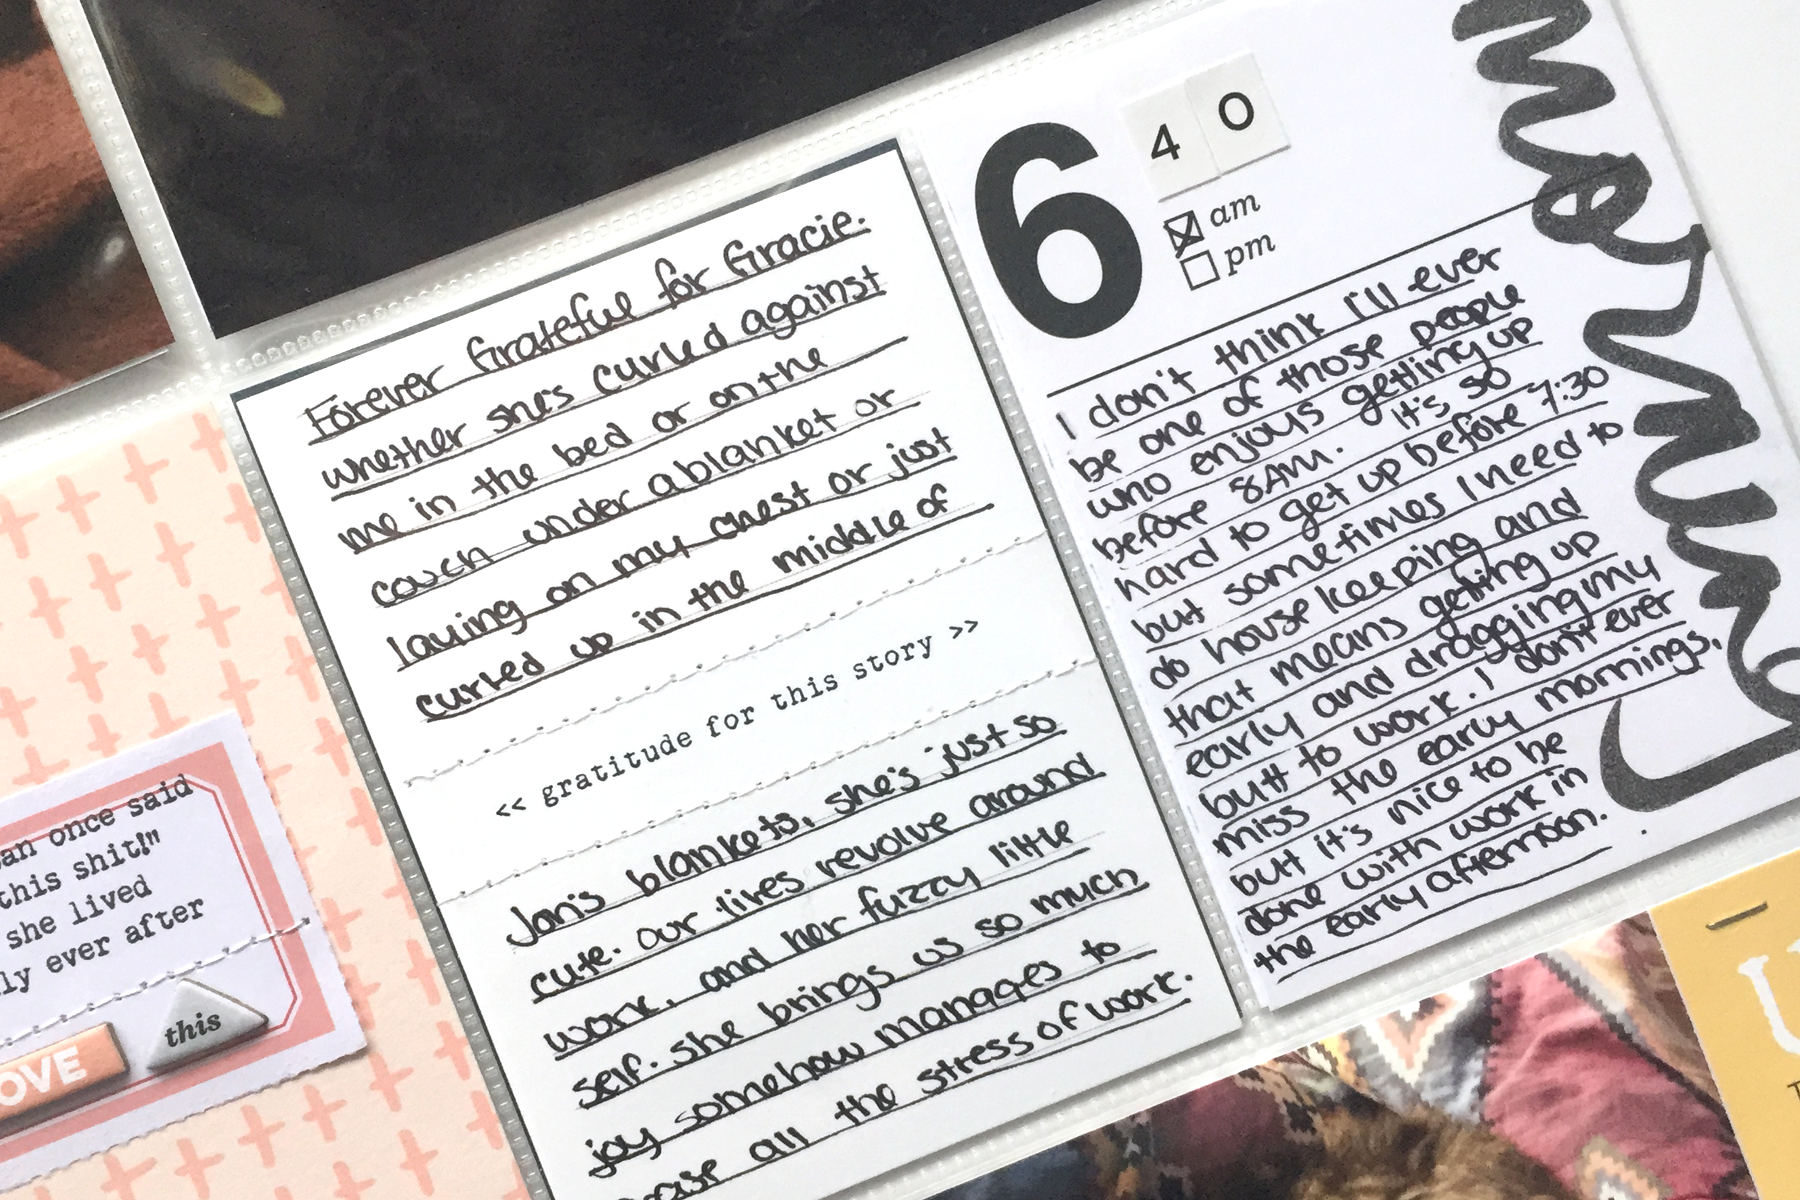 Forever Grateful for Gracie.
whether she's curled against
me in the bed or on the
couch under a blanket or
laying on my chest or just
curled up in the middle of
<< gratitude for this story >>
Jon's blankets, she's just so
cute. our lives revolve around
work, and her fuzzy little
self. she brings us so much
joy somehow manages to
all the stress of work.
6
4 0
am
pm
I don't think I'll ever
be one of those people
who enjoys getting up
before 8AM. It's so
hard to get up before 7:30
but sometimes I need to
do house keeping and
that means getting up
early and dragging my
butt to work. I don't ever
miss the early mornings,
but it's nice to be
done with work in
the early afternoon.
morning
an once said
this shit!"
she lived
ly ever after
this
OVE
U